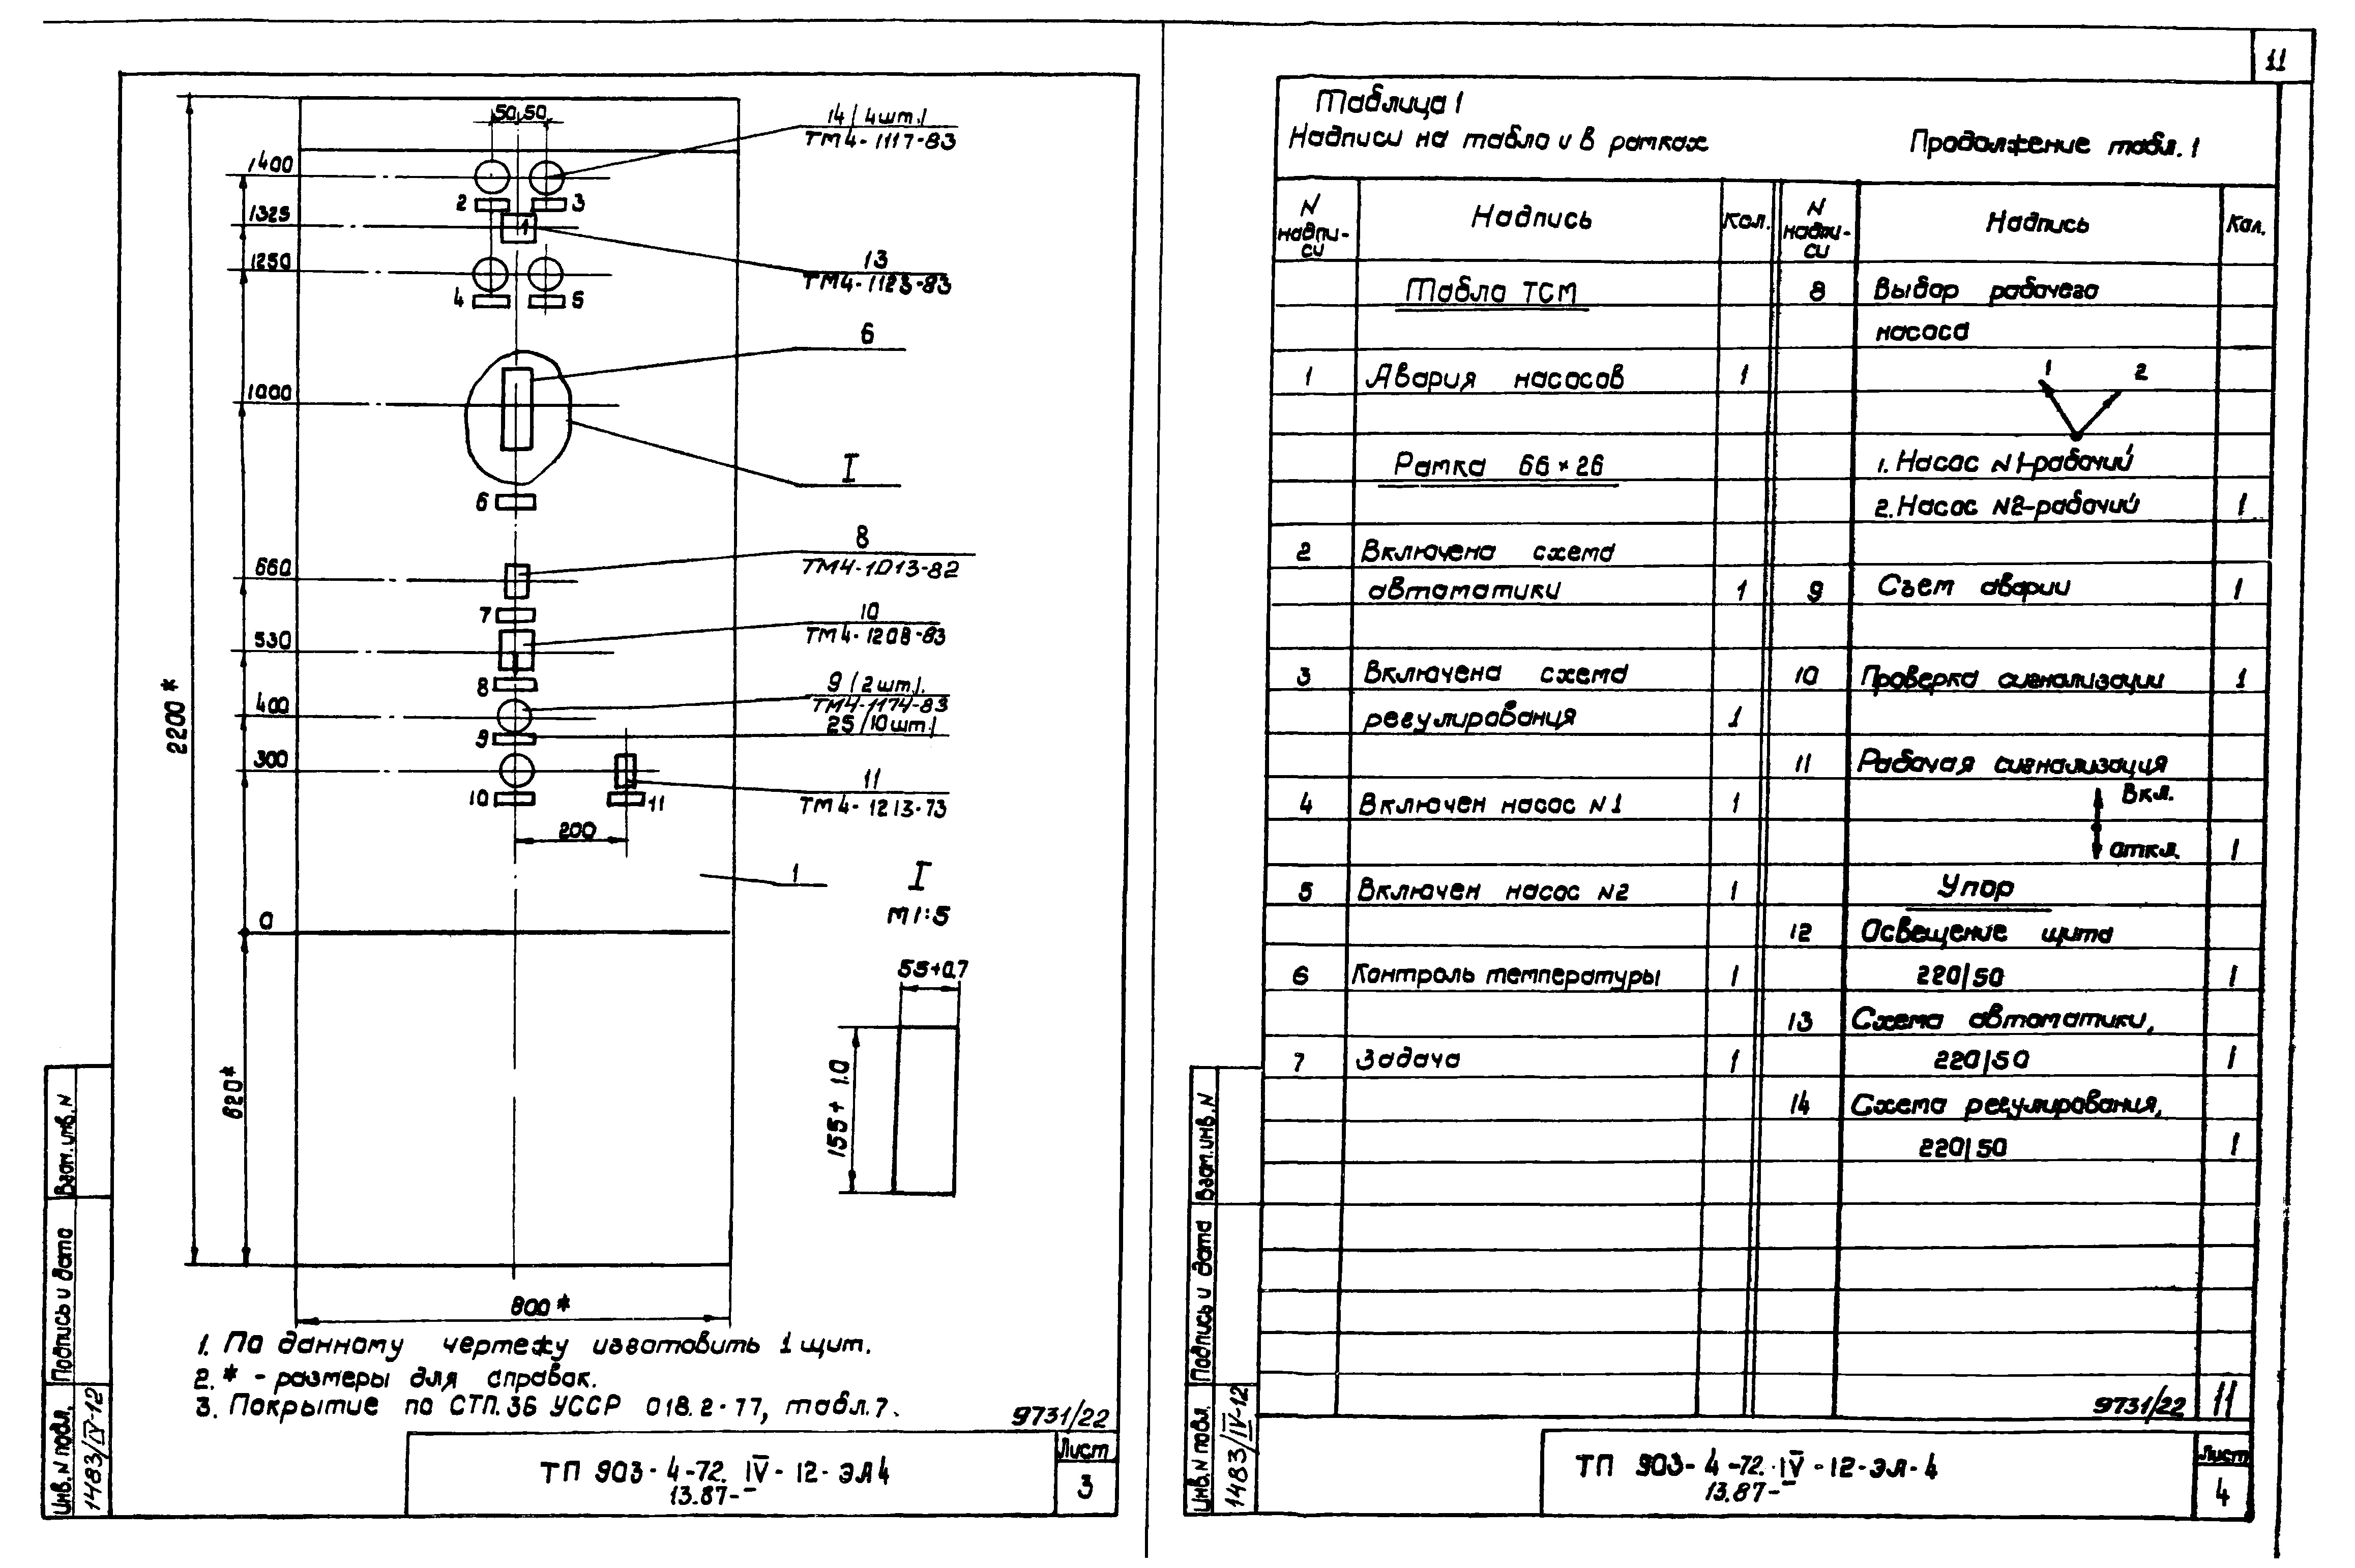 11
50 50
14 (4шт.)
ТМ4-1117-83
1400
2
3
1325
1
1250
13
ТМ4-1123-83
4
5
6
1000
I
6
8
ТМ4-1013-82
660
7
10
ТМ4-1208-83
530
8
9 (2шт.).
ТМ4-1174-83
25 (10шт.)
400
9
300
10
11
11
ТМ4-1213-73
200
1
0
I
М1:5
55+0.7
155+1.0
2200*
620*
800*
1. По данному чертежу изготовить 1 щит.
2. * - размеры для справок.
3. Покрытие по СТП.36 УССР 018.2-77, табл.7.
9731/22
ТП 903-4-72. IV-12-ЭЛ4
13.87-
Лист
3
Взам.инв.N
Подпись и дата
Инв.N подл.
1483/IV-12
Таблица 1
Надписи на табло и в рамках
Продолжение табл.1
N надпи-си Надпись Кол. N надпи-си Надпись Кол.
Табло ТСМ
1 Авария насосов 1
Рамка 66×26
2 Включена схема
автоматики 1
3 Включена схема
регулирования 1
4 Включен насос N1 1
5 Включен насос N2 1
6 Контроль температуры 1
7 Задача 1
8 Выбор рабочего
насоса
1 2
1. Насос N1-рабочий
2. Насос N2-рабочий 1
9 Съем аварии 1
10 Проверка сигнализации 1
11 Рабочая сигнализация
Вкл.
откл. 1
Упор
12 Освещение щита
220/50 1
13 Схема автоматики,
220/50 1
14 Схема регулирования,
220/50 1
9731/22 11
ТП 903-4-72. IV-12-ЭЛ-4
13.87-
Лист
4
Взам.инв.N
Подпись и дата
Инв.N подл.
1483/IV-12